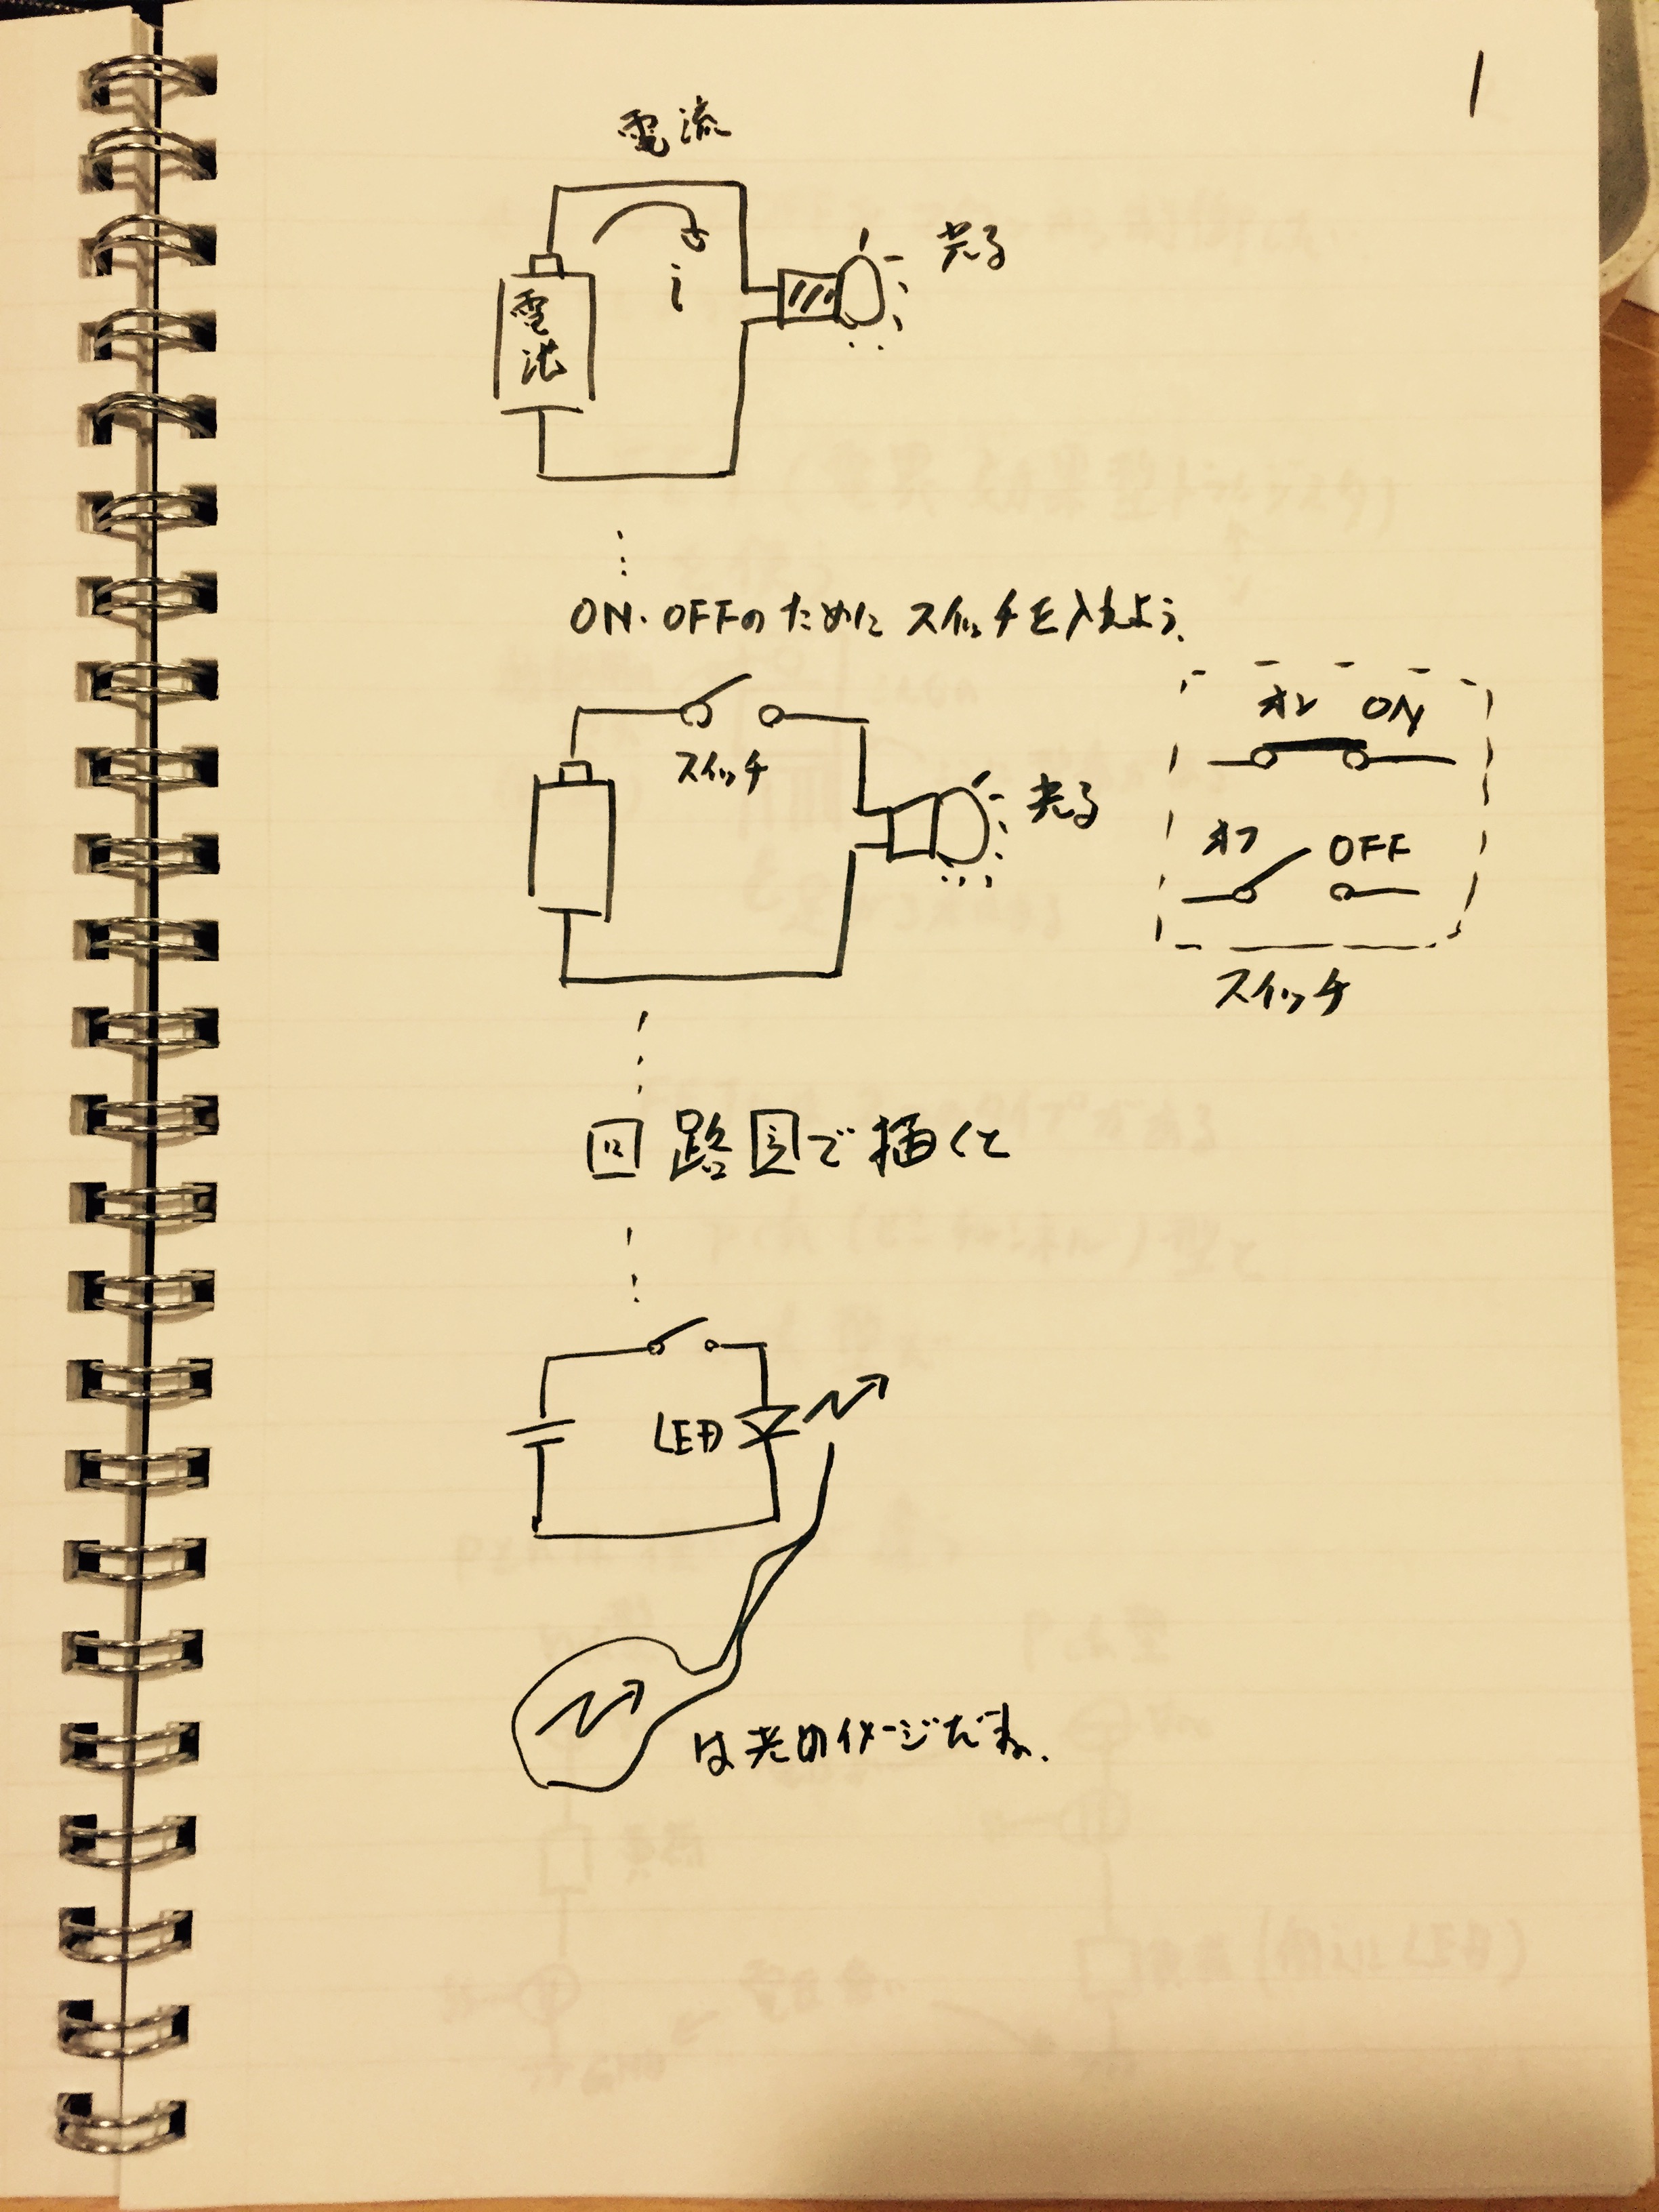 1
電流
i
電池
光る
ON・OFFのためにスイッチを入れよう.
スイッチ
光る
オン ON
オフ OFF
スイッチ
回路図で描くと
LED
は光のイメージだよね.